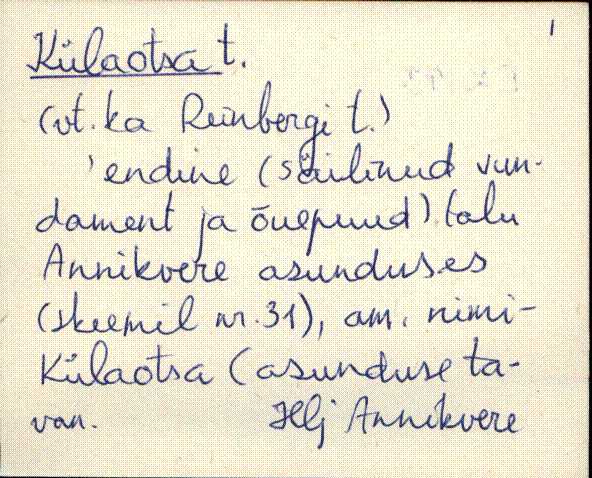 1
Külaotsa t.
(vt. ka Reinbergi t.)
'endine (säilinud vun-
dament ja õuepuud) talu
Annikvere asunduses
(skeemil nr. 31), am. nimi-
Külaotsa (asunduse ta-
van. Hlj Annikvere